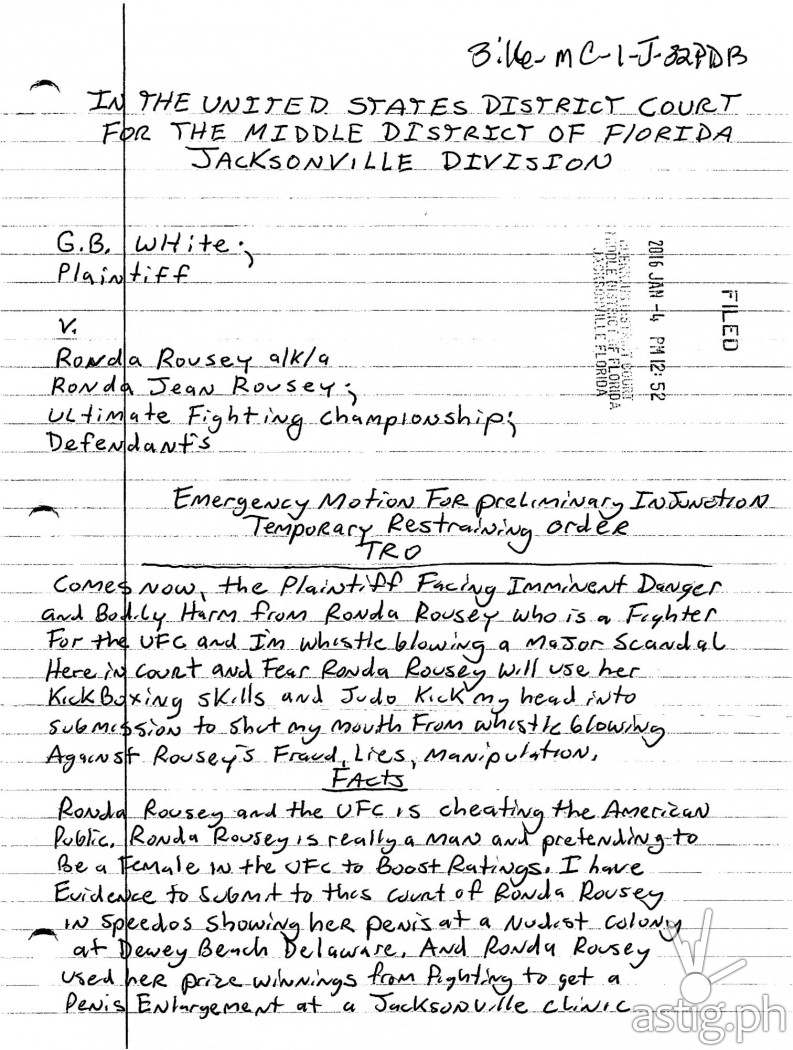 3:16-mc-1-J-32PDB
IN THE UNITED STATES DISTRICT COURT
FOR THE MIDDLE DISTRICT OF FLORIDA
JACKSONVILLE DIVISION
G.B. WHite;
Plaintiff
V.
Ronda Rousey a/k/a
Ronda Jean Rousey;
ULtimate Fighting championship;
Defendant's
FILED
2016 JAN -4 PM 12:52
CLERK US DISTRICT COURT
MIDDLE DISTRICT OF FLORIDA
JACKSONVILLE FLORIDA
Emergency Motion For preliminary Injunction
Temporary Restraining order
TRO
Comes now, the Plaintiff Facing Imminent Danger
and Bodily Harm from Ronda Rousey who is a Fighter
For the UFC and I'm whistle blowing a major scandal
Here in court and Fear Ronda Rousey will use her
KickBoxing skills and Judo Kick my head into
submission to shut my mouth From whistle blowing
Against Rousey's Fraud, Lies, Manipulation.
FActs
Ronda Rousey and the UFC is cheating the American
Public. Ronda Rousey is really a man and pretending to
Be a Female in the UFC to Boost Ratings. I have
Evidence to submit to this court of Ronda Rousey
in speedos showing her penis at a Nudist colony
at Dewey Beach Delaware. And Ronda Rousey
used her prize winnings from fighting to get a
Penis Enlargement at a Jacksonville clinic
astig.ph